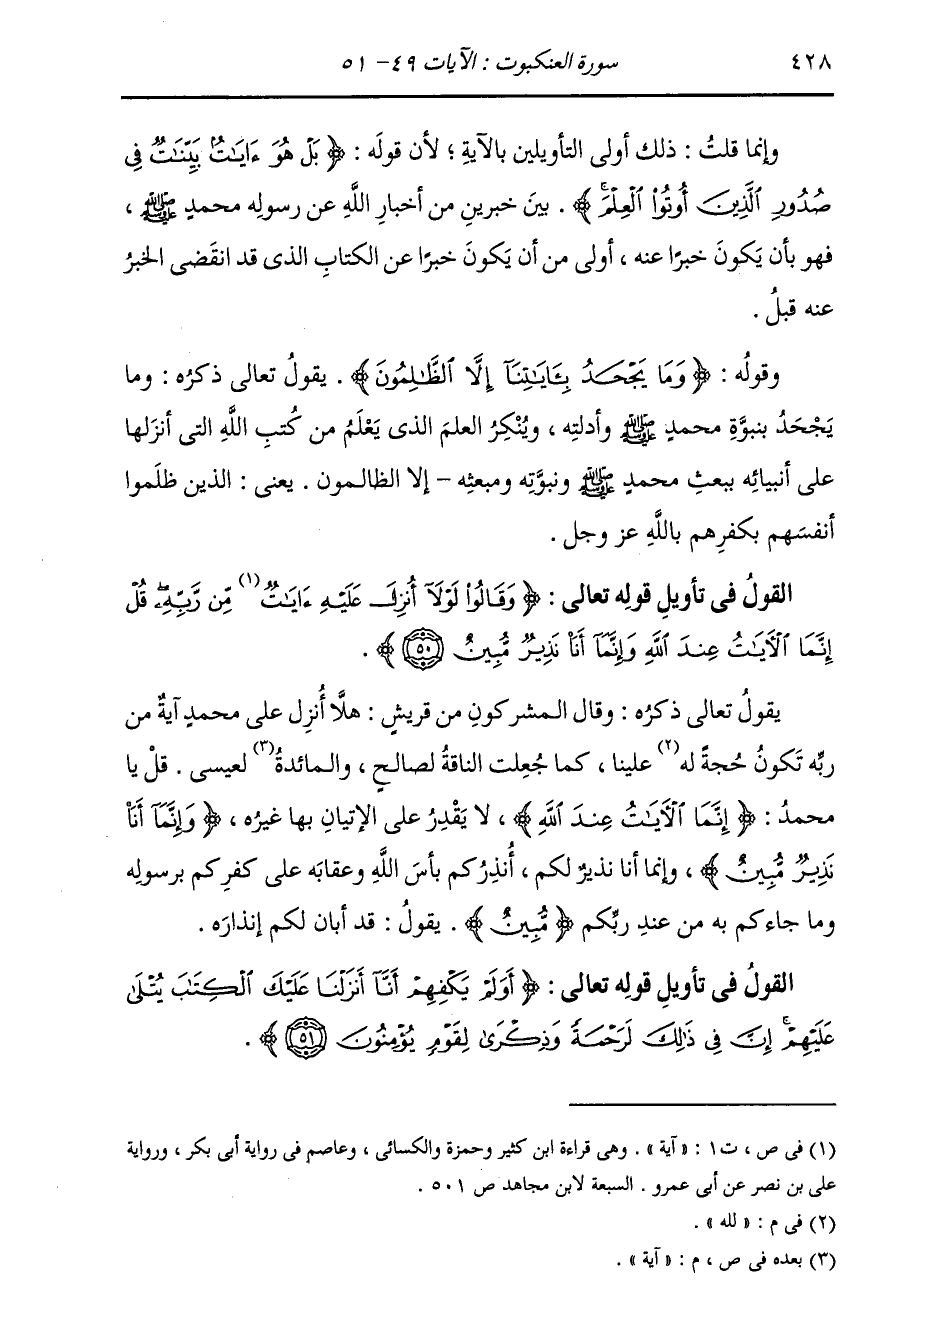 ٤٢٨ سورة العنكبوت : الآيات ٤٩- ٥١
وإنما قلتُ : ذلك أولى التأويلين بالآيةِ ؛ لأن قولَه : ﴿ بَلْ هُوَ ءَايَٰتٌۢ بَيِّنَٰتٌ فِى
صُدُورِ ٱلَّذِينَ أُوتُوا۟ ٱلْعِلْمَۚ ﴾ . بينَ خبرينِ من أخبارِ اللَّهِ عن رسولِه محمدٍ ﷺ ،
فهو بأن يَكونَ خبرًا عنه ، أولى من أن يَكونَ خبرًا عن الكتابِ الذى قد انقَضى الخبرُ
عنه قبلُ .
وقولُه : ﴿ وَمَا يَجْحَدُ بِـَٔايَٰتِنَآ إِلَّا ٱلظَّٰلِمُونَ ﴾ . يقولُ تعالى ذكرُه : وما
يَجْحَدُ بنبوَّةِ محمدٍ ﷺ وأدلتِه ، ويُنْكِرُ العلمَ الذى يَعْلَمُ من كُتبِ اللَّهِ التى أنزَلها
على أنبيائِه ببعثِ محمدٍ ﷺ ونبوَّتِه ومبعثِه - إلا الظالمون . يعنى : الذين ظلَموا
أنفسَهم بكفرِهم باللَّهِ عز وجل .
القولُ فى تأويلِ قولِه تعالى : ﴿ وَقَالُوا۟ لَوْلَآ أُنزِلَ عَلَيْهِ ءَايَٰتٌ(١) مِّن رَّبِّهِۦۖ قُلْ
إِنَّمَا ٱلْـَٔايَٰتُ عِندَ ٱللَّهِ وَإِنَّمَآ أَنَا۠ نَذِيرٌ مُّبِينٌ ۝٥٠ ﴾ .
يقولُ تعالى ذكرُه : وقال المشركون من قريشٍ : هلَّا أُنزِل على محمدٍ آيةٌ من
ربِّه تَكونُ حُجةً له(٢) علينا ، كما جُعِلت الناقةُ لصالحٍ ، والمائدةُ(٣) لعيسى . قلْ يا
محمدُ : ﴿ إِنَّمَا ٱلْـَٔايَٰتُ عِندَ ٱللَّهِ ﴾ ، لا يَقْدِرُ على الإتيانِ بها غيرُه ، ﴿ وَإِنَّمَآ أَنَا۠
نَذِيرٌ مُّبِينٌ ﴾ ، وإنما أنا نذيرٌ لكم ، أُنذِرُكم بأسَ اللَّهِ وعقابَه على كفرِكم برسولِه
وما جاءكم به من عندِ ربِّكم ﴿ مُّبِينٌ ﴾ . يقولُ : قد أبان لكم إنذارَه .
القولُ فى تأويلِ قولِه تعالى : ﴿ أَوَلَمْ يَكْفِهِمْ أَنَّآ أَنزَلْنَا عَلَيْكَ ٱلْكِتَٰبَ يُتْلَىٰ
عَلَيْهِمْۚ إِنَّ فِى ذَٰلِكَ لَرَحْمَةً وَذِكْرَىٰ لِقَوْمٍ يُؤْمِنُونَ ۝٥١ ﴾ .
(١) فى ص ، ت١ : « آية » . وهى قراءة ابن كثير وحمزة والكسائى ، وعاصم فى رواية أبى بكر ، ورواية
على بن نصر عن أبى عمرو . السبعة لابن مجاهد ص ٥٠١ .
(٢) فى م : « لله » .
(٣) بعده فى ص ، م : « آية » .